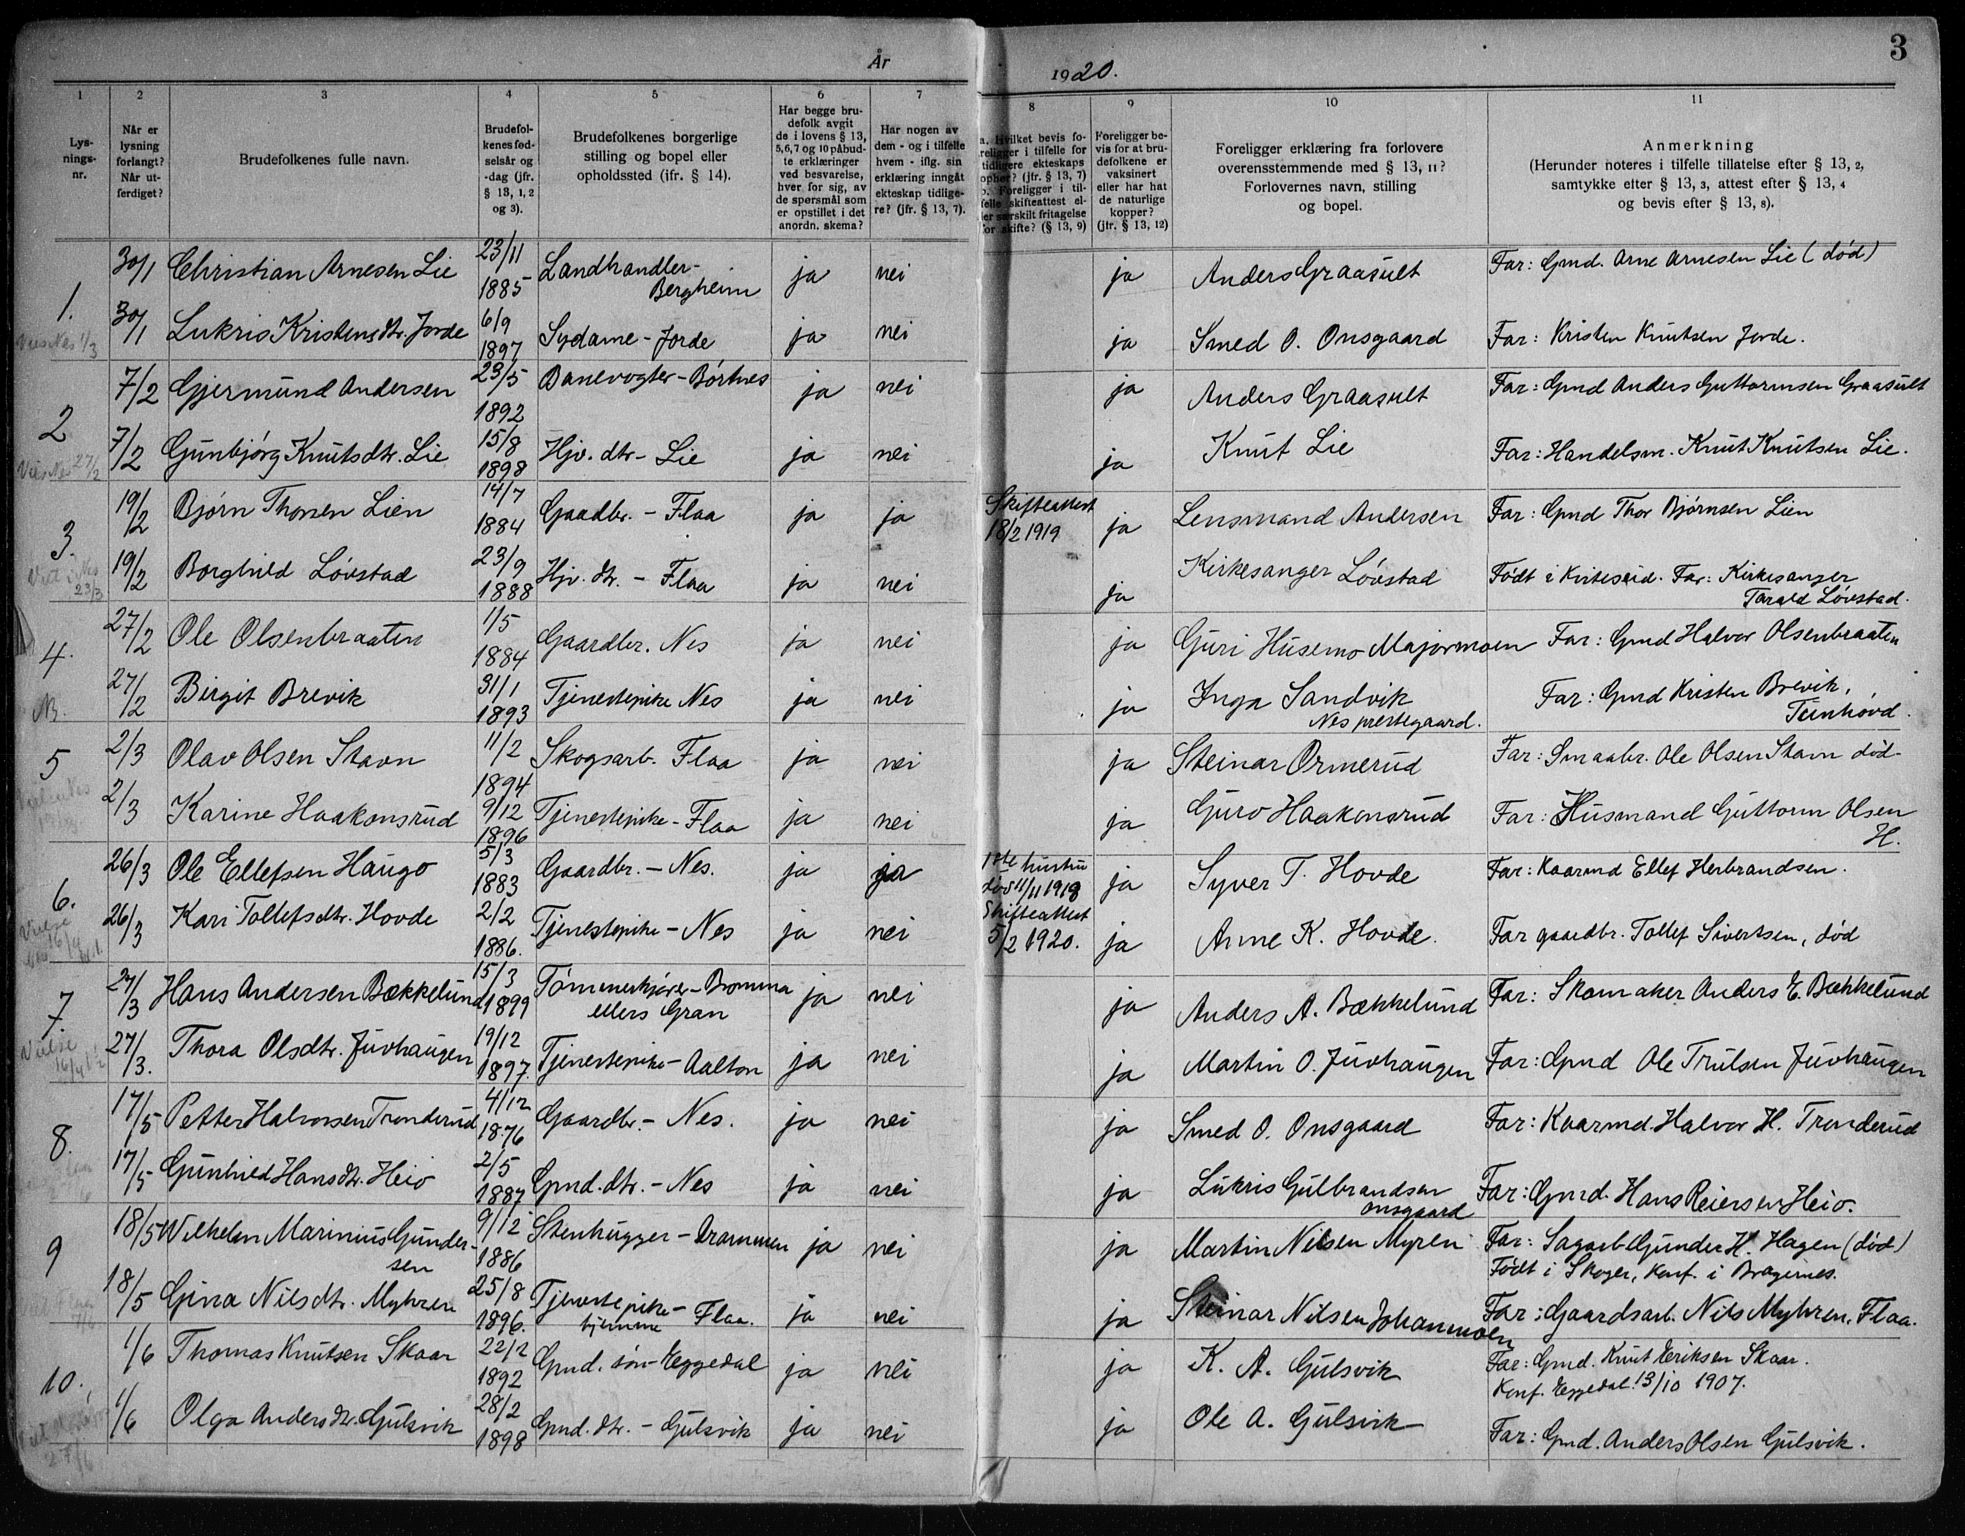 År
1920.
3
1
Lys-
nings-
nr.
2
Når er
lysning
forlangt?
Når ut-
ferdiget?
3
Brudefolkenes fulle navn.
4
Brudefol-
kenes fød-
selsår og
-dag (jfr.
§ 13, 1, 2
og 3).
5
Brudefolkenes borgerlige
stilling og bopel eller
opholdssted (ifr. § 14).
6
Har begge bru-
defolk avgit
de i lovens § 13,
5,6,7 og 10 påbud-
te erklæringer
ved besvarelse,
hver for sig, av
de spørsmål som
er opstillet i det
anordn. skema?
7
Har nogen av
dem - og i tilfelle
hvem - iflg. sin
erklæring inngåt
ekteskap tidlige-
re? (jfr. § 13, 7).
8
a. Hvilket bevis fo-
religger i tilfelle for
tidligere ekteskaps
ophør? (jfr. § 13, 7)
b. Foreligger i til-
felle skifteattest el-
ler særskilt fritagelse
for skifte? (§ 13, 9)
9
Foreligger be-
vis for at bru-
defolkene er
vaksinert
eller har hat
de naturlige
kopper?
(jfr. § 13, 12)
10
Foreligger erklæring fra forlovere
overensstemmende med § 13, 11?
Forlovernes navn, stilling
og bopel.
11
Anmerkning
(Herunder noteres i tilfelle tillatelse efter § 13, 2,
samtykke efter § 13, 3, attest efter § 13, 4
og bevis efter § 13, 8).
1.
30/1 Christian Arnesen Lie 23/11 1885 Landhandler- Bergheim ja nei ja Anders Graasult Far: Gmd. Arne Arnesen Lie (død)
30/1 Lukris Kristensdtr. Jorde 6/9 1897 Sydame - Jorde ja nei ja Smed O. Onsgaard Far: Kristen Knutsen Jorde.
2
7/2 Gjermund Andersen 23/5 1892 Banevogter - Børtnes ja nei ja Anders Graasult Far: Gmd Anders Guttormsen Graasult
7/2 Gunbjørg Knutsdtr. Lie 15/8 1898 Hjv. dtr - Lie ja nei ja Knut Lie Far: Handelsm. Knut Knutsen Lie.
27/2
3.
19/2 Bjørn Thorsen Lien 14/7 1884 Gaadbr. - Flaa ja ja Skifteattest 18/2 1919 ja Lensmand Andersen Far: Gmd Thor Bjørnsen Lien
19/2 Borghild Løvstad 23/9 1888 Hjv. dtr. - Flaa ja nei ja Kirkesanger Løvstad Født i Kviteseid. Far: Kirkesanger
Tarald Løvstad.
23/3
4.
27/2 Ole Olsenbraaten 1/5 1884 Gaardbr. Nes ja nei ja Guri Husemo Majormoen Far: Gmd Halvor Olsenbraaten
NB.
27/2 Birgit Brevik 31/1 1893 Tjenestepike Nes ja nei ja Inga Sandvik Far: Gmd Kristen Brevik,
Nes prestegaard. Tunhøvd.
5
2/3 Olav Olsen Stavn 11/2 1894 Skogsarb. Flaa ja nei ja Steinar Ormerud Far: Smaabr. Ole Olsen Stavn død-
2/3 Karine Haakonsrud 9/12 1896 Tjenestepike - Flaa ja nei ja Guro Haakonsrud Far: Husmand Guttorm Olsen
H.
6.
26/3 Ole Ellefsen Haugo 5/3 1883 Gaardbr. - Nes. ja ja 1ste hustru død 11/11 1918 ja Syver T. Hovde Far: Kaarmd Ellef Herbrandsen.
26/3 Kari Tollefsdtr. Hovde 2/2 1886. Tjenestepike - Nes ja nei Skifteattest 5/2 1920. ja Anne K. Hovde. Far gaardbr. Tollef Sivertsen, død
7.
27/3 Hans Andersen Bækkelund 15/3 1899 Tømmerkjører - Bromma
ellers Gran ja nei ja Anders A. Bækkelund Far: Skomaker Anders E. Bækkelund
27/3. Thora Olsdtr. Juvhaugen 19/12 1897. Tjenestepike - Aalton ja nei ja Martin O. Juvhaugen Far: Gmd Ole Trulsen Juvhaugen
8.
17/5 Petter Halvorsen Tronderud 4/12 1876 Gaardbr. - Nes. ja nei ja Smed O. Onsgaard Far: Kaarmd. Halvor H. Tronderud
17/5 Gunhild Hansdtr. Heio 2/5 1887 Gmd. dtr. - Nes ja nei ja Lukris Gulbrandsen Far: Gmd. Hans Reiersen Heio.
Onsgaard
9
18/5 Wilhelm Marinius Gunder-
sen 9/12 1886 Stenhugger - Drammen ja nei ja Martin Nilsen Myren Far: Sagarb. Gunder H. Hagen (død)
Født i Skoger, Konf. i Bragernes.
18/5 Gina Nilsdtr. Myhren 25/8 1896. Tjenestepike -
hjemme Flaa. ja nei ja Steinar Nilsen Johannmoen Far: Gaardsarb. Nils Myhren, Flaa.
10.
1/6 Thomas Knutsen Skaar 22/2 1892 Gmd. søn - Eggedal ja nei ja K. A. Gulsvik Far: Gmd. Knut Eriksen Skaar.
Konf. Eggedal 13/10 1907.
1/6 Olga Andersdtr. Gulsvik 28/2 1898 Gmd. dtr. - Gulsvik ja nei ja Ole A. Gulsvik Far: Gmd. Anders Olsen Gulsvik.
27/6